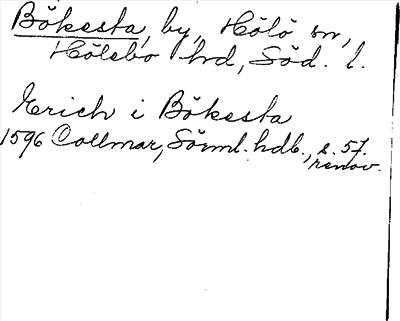 Bökesta, by, Hölö sn,
Hölebo hd, Söd. l.
Erich i Bökesta
1596 Collmar, Sörml. hdb., s. 57.
renov.